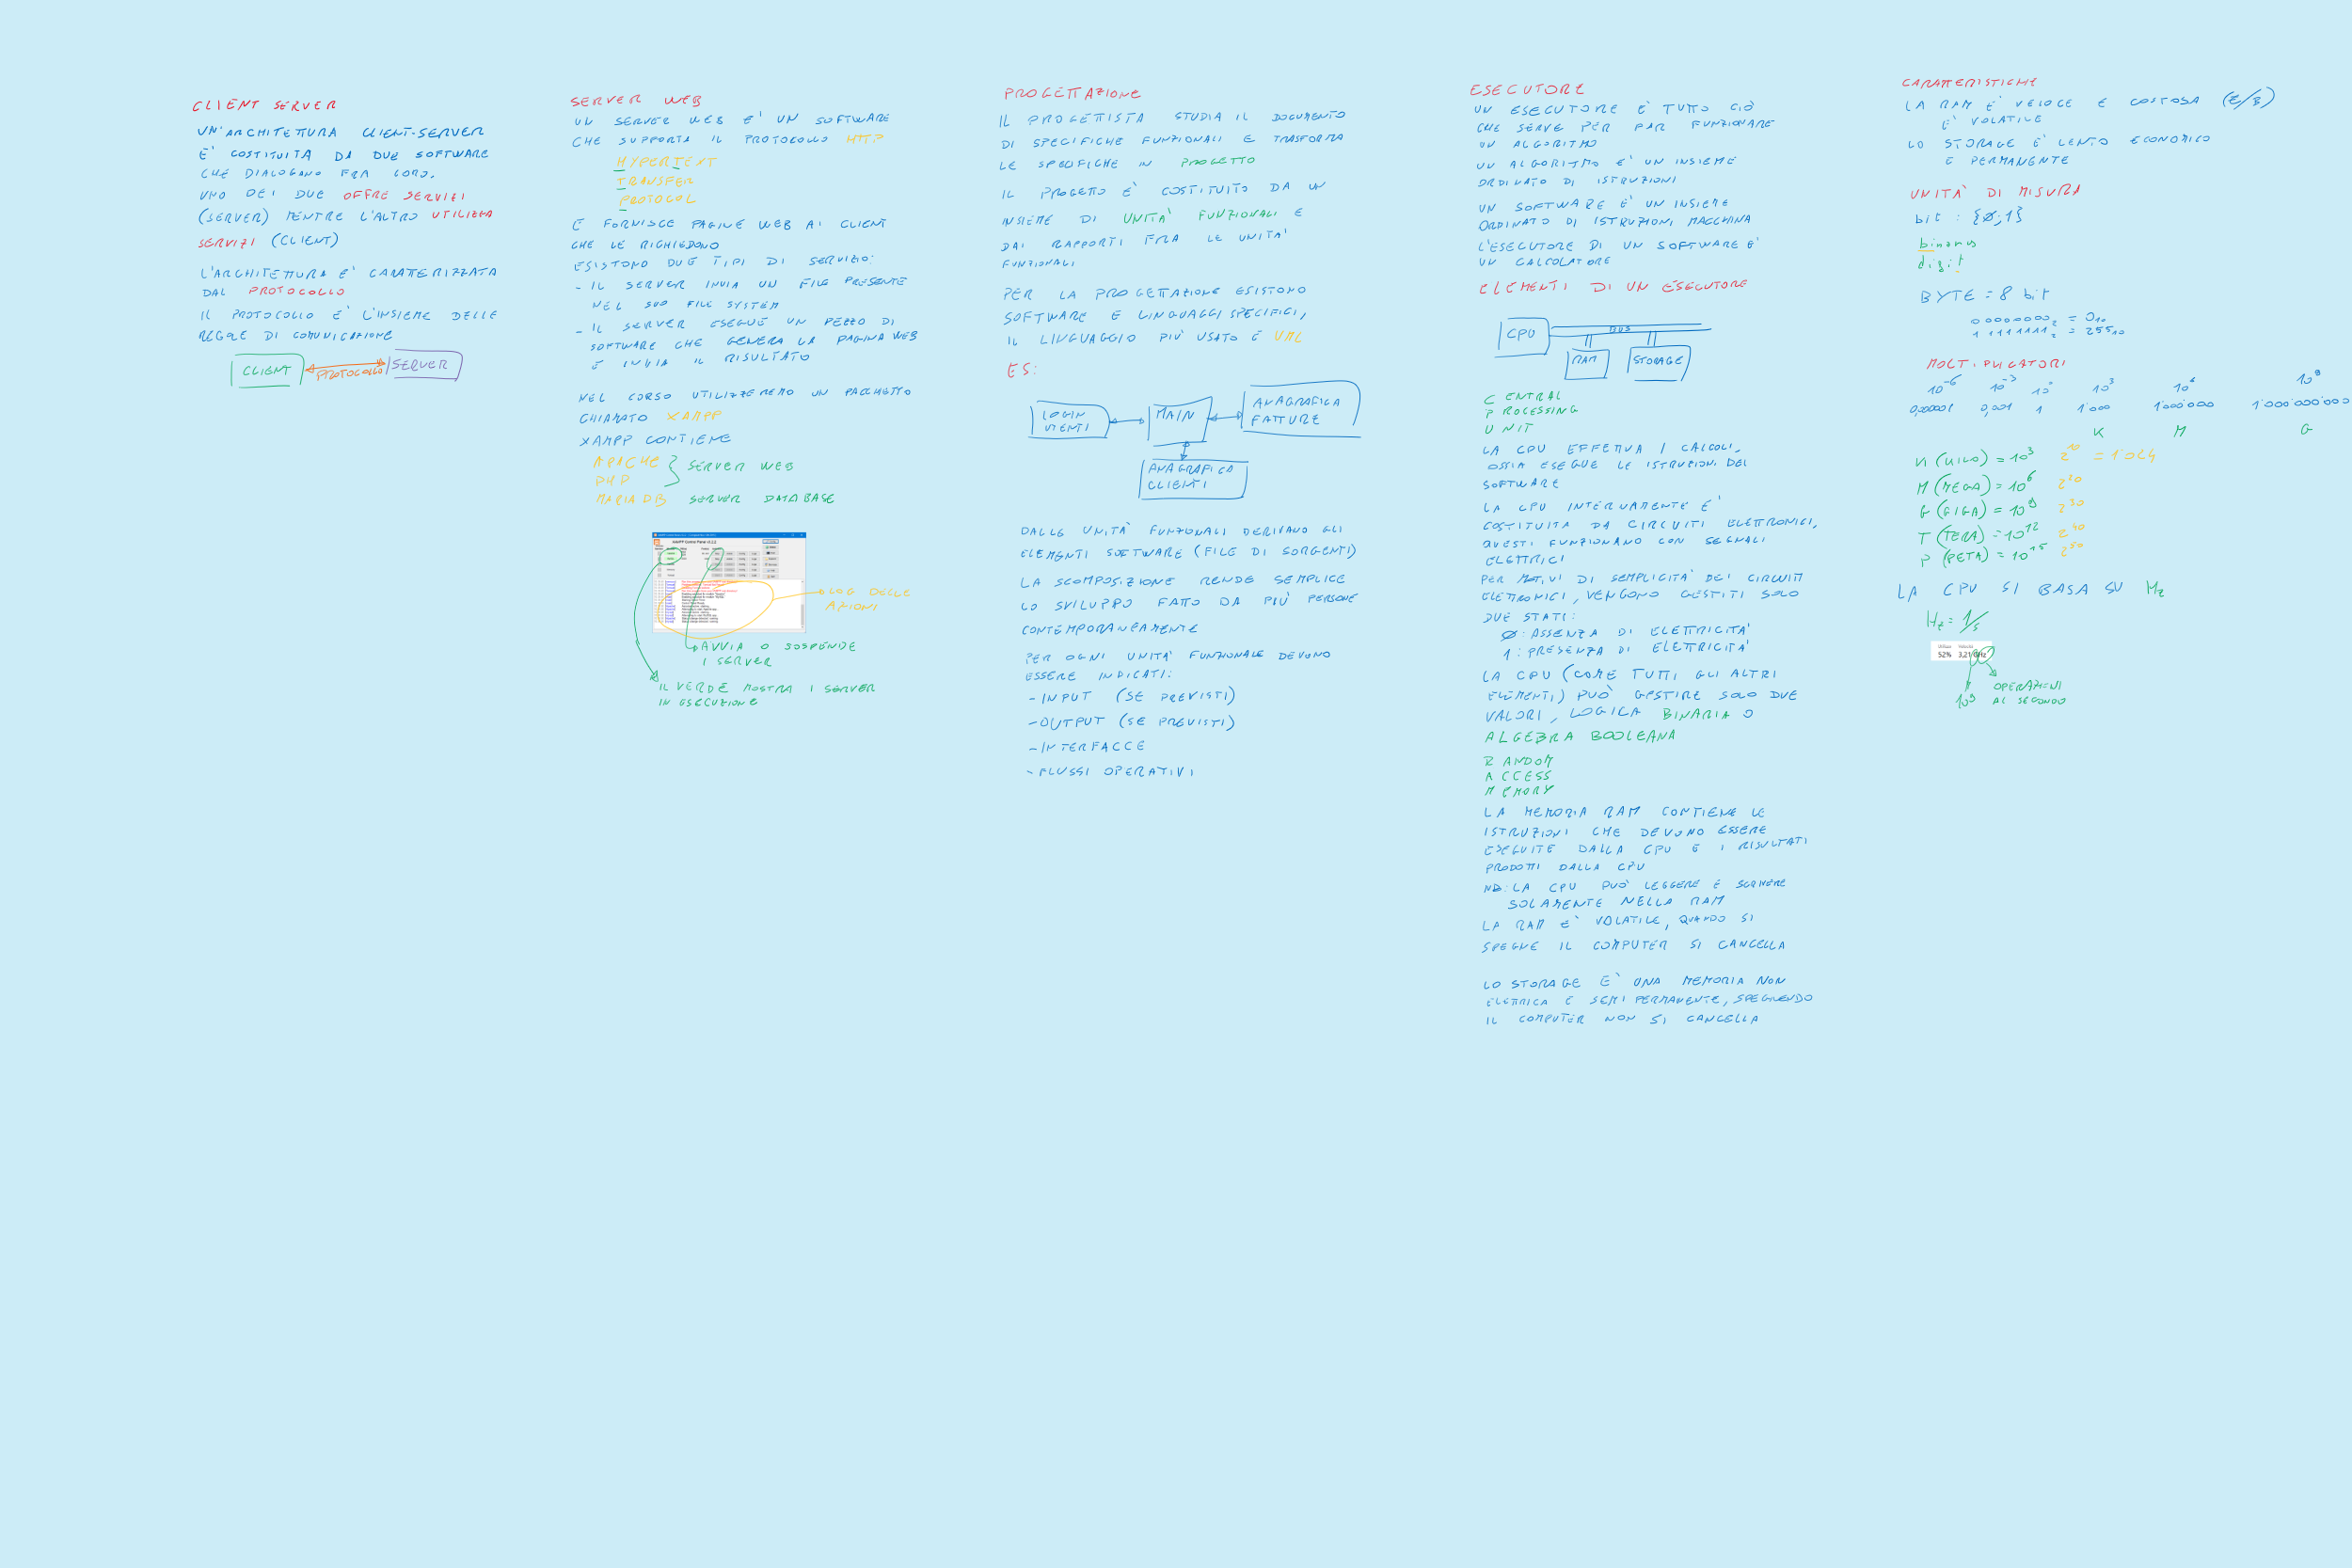 CLIENT SERVER
UN'ARCHITETTURA CLIENT-SERVER
E' COSTITUITA DA DUE SOFTWARE
CHE DIALOGANO FRA LORO.
UNO DEI DUE OFFRE SERVIZI
(SERVER) MENTRE L'ALTRO UTILIZZA
SERVIZI (CLIENT)
L'ARCHITETTURA E' CARATTERIZZATA
DAL PROTOCOLLO
IL PROTOCOLLO E' L'INSIEME DELLE
REGOLE DI COMUNICAZIONE
CLIENT PROTOCOLLO SERVER
SERVER WEB
UN SERVER WEB E' UN SOFTWARE
CHE SUPPORTA IL PROTOCOLLO HTTP
HYPERTEXT
TRANSFER
PROTOCOL
E FORNISCE PAGINE WEB AI CLIENT
CHE LE RICHIEDONO
ESISTONO DUE TIPI DI SERVIZIO:
- IL SERVER INVIA UN FILE PRESENTE
NEL SUO FILE SYSTEM
- IL SERVER ESEGUE UN PEZZO DI
SOFTWARE CHE GENERA LA PAGINA WEB
E INVIA IL RISULTATO
NEL CORSO UTILIZZEREMO UN PACCHETTO
CHIAMATO XAMPP
XAMPP CONTIENE
APACHE
PHP
} SERVER WEB
MARIA DB SERVER DATABASE
XAMPP Control Panel
LOG DELLE
AZIONI
AVVIA O SOSPENDE
I SERVER
IL VERDE MOSTRA I SERVER
IN ESECUZIONE
PROGETTAZIONE
IL PROGETTISTA STUDIA IL DOCUMENTO
DI SPECIFICHE FUNZIONALI E TRASFORMA
LE SPECIFICHE IN PROGETTO
IL PROGETTO E' COSTITUITO DA UN
INSIEME DI UNITA' FUNZIONALI E
DAI RAPPORTI FRA LE UNITA'
FUNZIONALI
PER LA PROGETTAZIONE ESISTONO
SOFTWARE E LINGUAGGI SPECIFICI,
IL LINGUAGGIO PIÙ USATO È UML
ES:
LOGIN
UTENTI
MAIN
ANAGRAFICA
FATTURE
ANAGRAFICA
CLIENTI
DALLE UNITA' FUNZIONALI DERIVANO GLI
ELEMENTI SOFTWARE (FILE DI SORGENTI)
LA SCOMPOSIZIONE RENDE SEMPLICE
LO SVILUPPO FATTO DA PIÙ PERSONE
CONTEMPORANEAMENTE
PER OGNI UNITA' FUNZIONALE DEVONO
ESSERE INDICATI:
- INPUT (SE PREVISTI)
- OUTPUT (SE PREVISTI)
- INTERFACCE
- FLUSSI OPERATIVI
ESECUTORE
UN ESECUTORE E' TUTTO CIÒ
CHE SERVE PER FAR FUNZIONARE
UN ALGORITMO
UN ALGORITMO E' UN INSIEME
ORDINATO DI ISTRUZIONI
UN SOFTWARE E' UN INSIEME
ORDINATO DI ISTRUZIONI MACCHINA
L'ESECUTORE DI UN SOFTWARE E'
UN CALCOLATORE
ELEMENTI DI UN ESECUTORE
CPU BUS
RAM STORAGE
CENTRAL
PROCESSING
UNIT
LA CPU EFFETTUA I CALCOLI,
OSSIA ESEGUE LE ISTRUZIONI DEL
SOFTWARE
LA CPU INTERNAMENTE E'
COSTITUITA DA CIRCUITI ELETTRONICI,
QUESTI FUNZIONANO CON SEGNALI
ELETTRICI
PER MOTIVI DI SEMPLICITA' DEI CIRCUITI
ELETTRONICI, VENGONO GESTITI SOLO
DUE STATI:
0: ASSENZA DI ELETTRICITA'
1: PRESENZA DI ELETTRICITA'
LA CPU (COME TUTTI GLI ALTRI
ELEMENTI) PUÒ GESTIRE SOLO DUE
VALORI, LOGICA BINARIA O
ALGEBRA BOOLEANA
RANDOM
ACCESS
MEMORY
LA MEMORIA RAM CONTIENE LE
ISTRUZIONI CHE DEVONO ESSERE
ESEGUITE DALLA CPU E I RISULTATI
PRODOTTI DALLA CPU
NB: LA CPU PUÒ LEGGERE E SCRIVERE
SOLAMENTE NELLA RAM
LA RAM E' VOLATILE, QUANDO SI
SPEGNE IL COMPUTER SI CANCELLA
LO STORAGE E' UNA MEMORIA NON
ELETTRICA E SEMI PERMANENTE, SPEGNENDO
IL COMPUTER NON SI CANCELLA
CARATTERISTICHE
LA RAM E' VELOCE E COSTOSA (€/B)
E' VOLATILE
LO STORAGE E' LENTO ECONOMICO
E PERMANENTE
UNITA' DI MISURA
bit : {0;1}
binary
digit
BYTE = 8 bit
00000000₂ = 0₁₀
11111111₂ = 255₁₀
MOLTIPLICATORI
10⁻⁶ 10⁻³ 10⁰ 10³ 10⁶ 10⁹
0,000001 0,001 1 1'000 1'000'000 1'000'000'000
K M G
K (KILO) = 10³ 2¹⁰ = 1024
M (MEGA) = 10⁶ 2²⁰
G (GIGA) = 10⁹ 2³⁰
T (TERA) = 10¹² 2⁴⁰
P (PETA) = 10¹⁵ 2⁵⁰
LA CPU SI BASA SU Hz
Hz = 1/s
52% 3,21 GHz
10⁹
OPERAZIONI
AL SECONDO